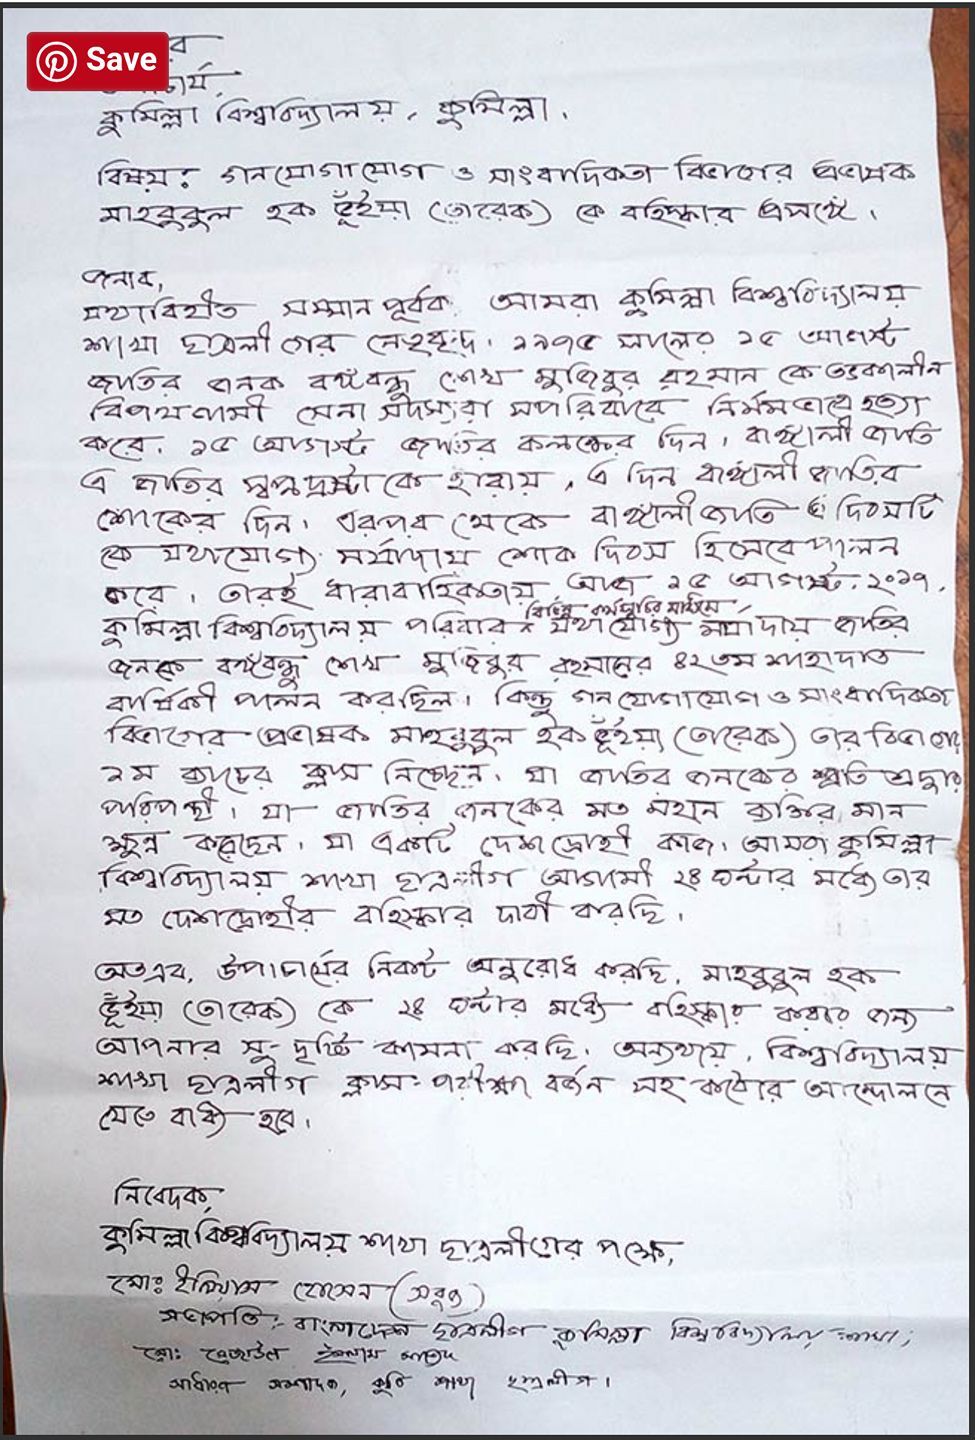 Save
কুমিল্লা বিশ্ববিদ্যালয়, কুমিল্লা।
বিষয়: গনযোগাযোগ ও সাংবাদিকতা বিভাগের প্রভাষক
মাহবুবুল হক ভূঁইয়া (তারেক) কে বহিস্কার প্রসঙ্গে।
জনাব,
যথাবিহীত সম্মান পূর্বক আমরা কুমিল্লা বিশ্ববিদ্যালয়
শাখা ছাত্রলীগের নেতৃবৃন্দ। ১৯৭৫ সালের ১৫ আগস্ট
জাতির জনক বঙ্গবন্ধু শেখ মুজিবুর রহমান কে তৎকালীন
বিপথগামী সেনা সদস্যরা সপরিবারে নির্মমভাবে হত্যা
করে। ১৫ আগস্ট জাতির কলঙ্কের দিন। বাঙ্গালী জাতি
এ জাতির স্বপ্নদ্রষ্টাকে হারায়, এ দিন বাঙ্গালী জাতির
শোকের দিন। এরপর থেকে বাঙ্গালী জাতি এ দিবসটি
কে যথাযোগ্য মর্যাদায় শোক দিবস হিসেবে পালন
করে। তারই ধারাবাহিকতায় আজ ১৫ আগস্ট, ২০১৭,
বিভিন্ন কর্মসূচির মাধ্যমে
কুমিল্লা বিশ্ববিদ্যালয় পরিবার যথাযোগ্য মর্যাদায় জাতির
জনক বঙ্গবন্ধু শেখ মুজিবুর রহমানের ৪২তম শাহাদাত
বার্ষিকী পালন করছিল। কিন্তু গনযোগাযোগ ও সাংবাদিকতা
বিভাগের প্রভাষক মাহবুবুল হক ভূঁইয়া (তারেক) তার বিভাগের
১ম ব্যাচের ক্লাস নিচ্ছেন। যা জাতির জনকের প্রতি শ্রদ্ধার
পরিপন্থী। যা জাতির জনকের মত মহান ব্যক্তির মান
ক্ষুন্ন করেছেন। যা একটি দেশদ্রোহী কাজ। আমরা কুমিল্লা
বিশ্ববিদ্যালয় শাখা ছাত্রলীগ আগামী ২৪ ঘন্টার মধ্যে তার
মত দেশদ্রোহীর বহিস্কার দাবী করছি।
অতএব, উপাচার্যের নিকট অনুরোধ করছি, মাহবুবুল হক
ভূঁইয়া (তারেক) কে ২৪ ঘন্টার মধ্যে বহিস্কার করার জন্য
আপনার সু-দৃষ্টি কামনা করছি। অন্যথায়, বিশ্ববিদ্যালয়
শাখা ছাত্রলীগ ক্লাস-পরীক্ষা বর্জন সহ কঠোর আন্দোলনে
যেতে বাধ্য হবে।
নিবেদক,
কুমিল্লা বিশ্ববিদ্যালয় শাখা ছাত্রলীগের পক্ষে,
মোঃ ইলিয়াস হোসেন (সবুজ)
সভাপতি, বাংলাদেশ ছাত্রলীগ কুমিল্লা বিশ্ববিদ্যালয় শাখা,
মোঃ রেজাউল ইসলাম মাজেদ
সাধারণ সম্পাদক, কুবি শাখা ছাত্রলীগ।